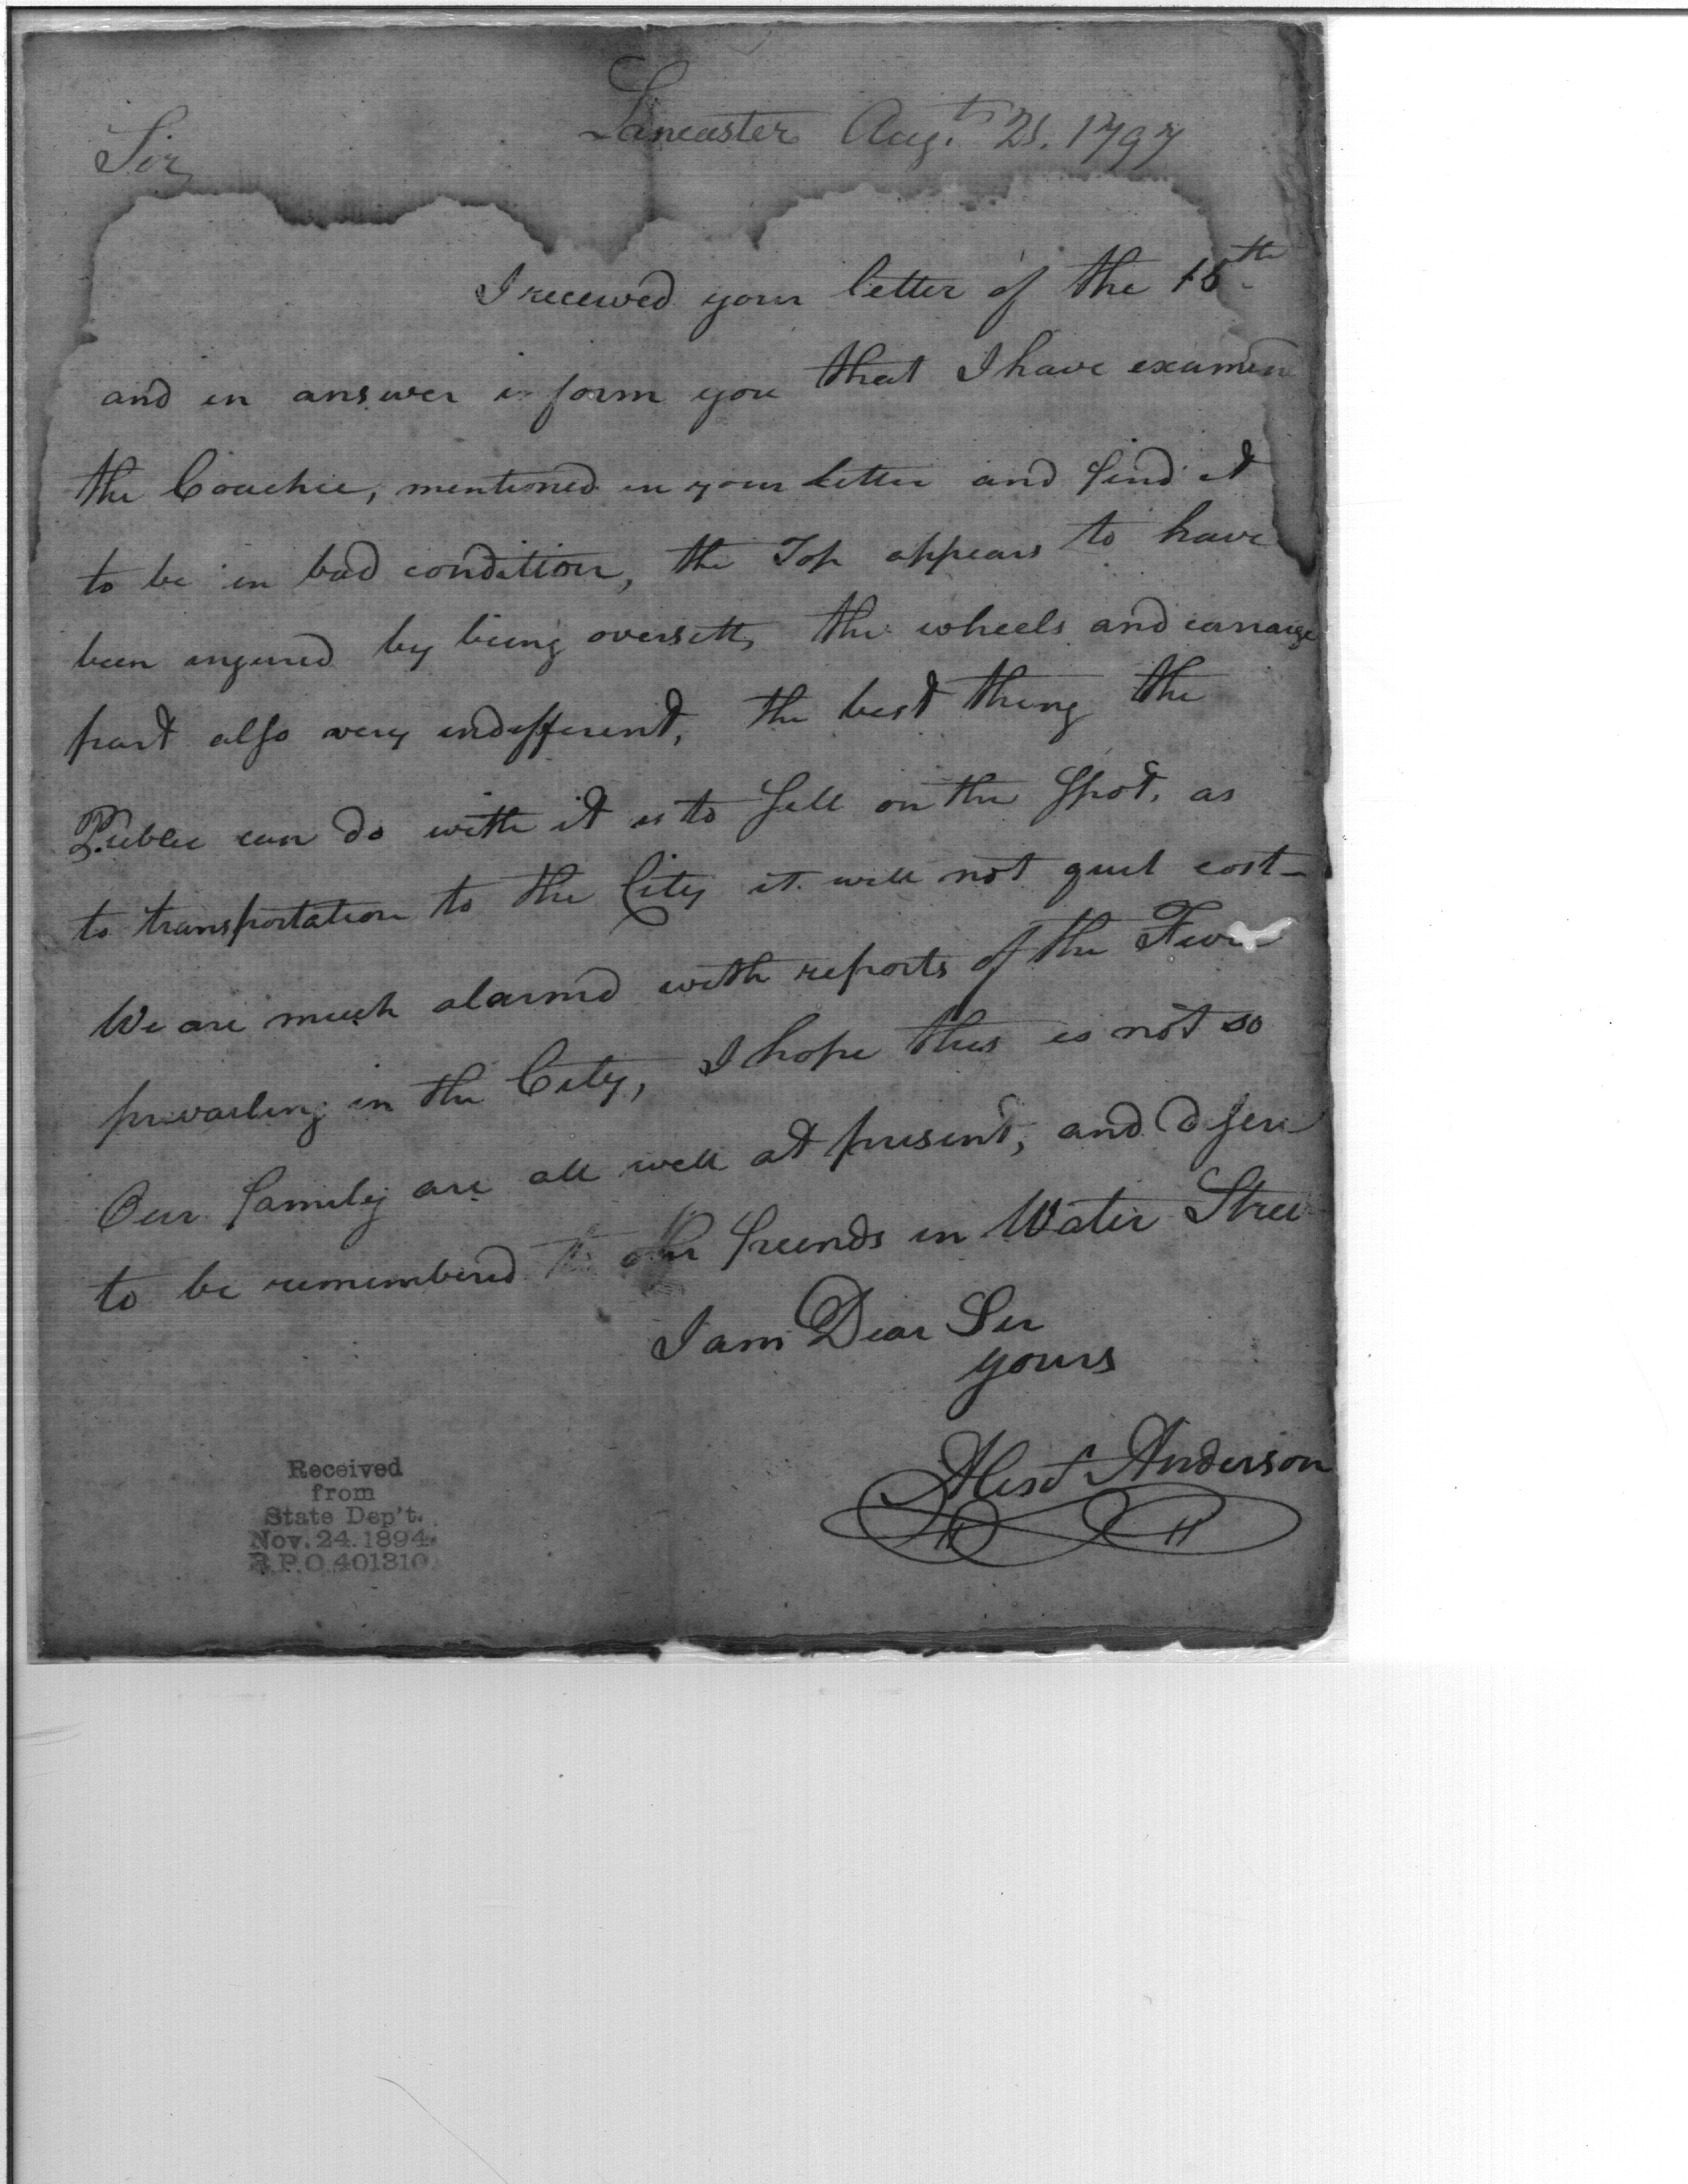 Lancaster Augt. 21. 1797
Sir
I received your letter of the 15th
and in answer inform you that I have examin
the Coachee, mentioned in your letter and find it
to be in bad condition, the Top appears to have
been injured by being oversett, the wheels and carriage
part also very indifferent, the best thing the
Public can do with it is to sell on the spot, as
to transportation to the City it will not quit cost—
We are much alarmd with reports of the Fever
prevailing in the City, I hope this is not so
Our family are all well at present, and desire
to be remembered to our friends in Water Stree
I am Dear Sir
yours
Alexd. Anderson
Received
from
State Dep't.
Nov. 24. 1894.
R.P.O. 401310.